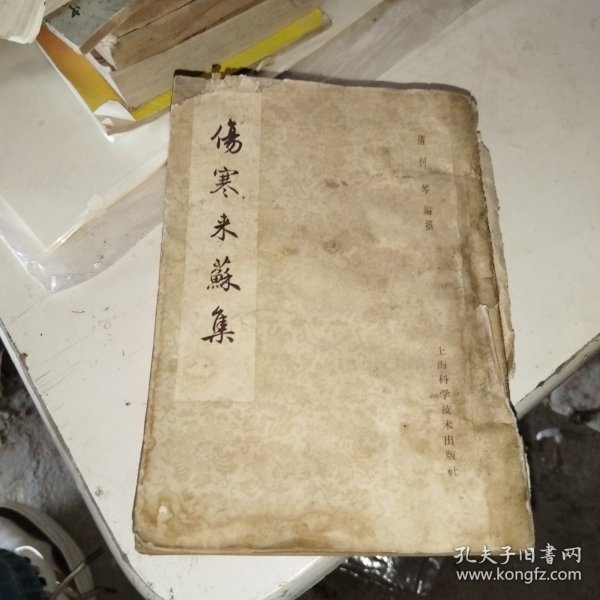 傷寒来蘇集
清 柯 琴 編撰
上海科学技术出版社
孔夫子旧書网
www.kongfz.com